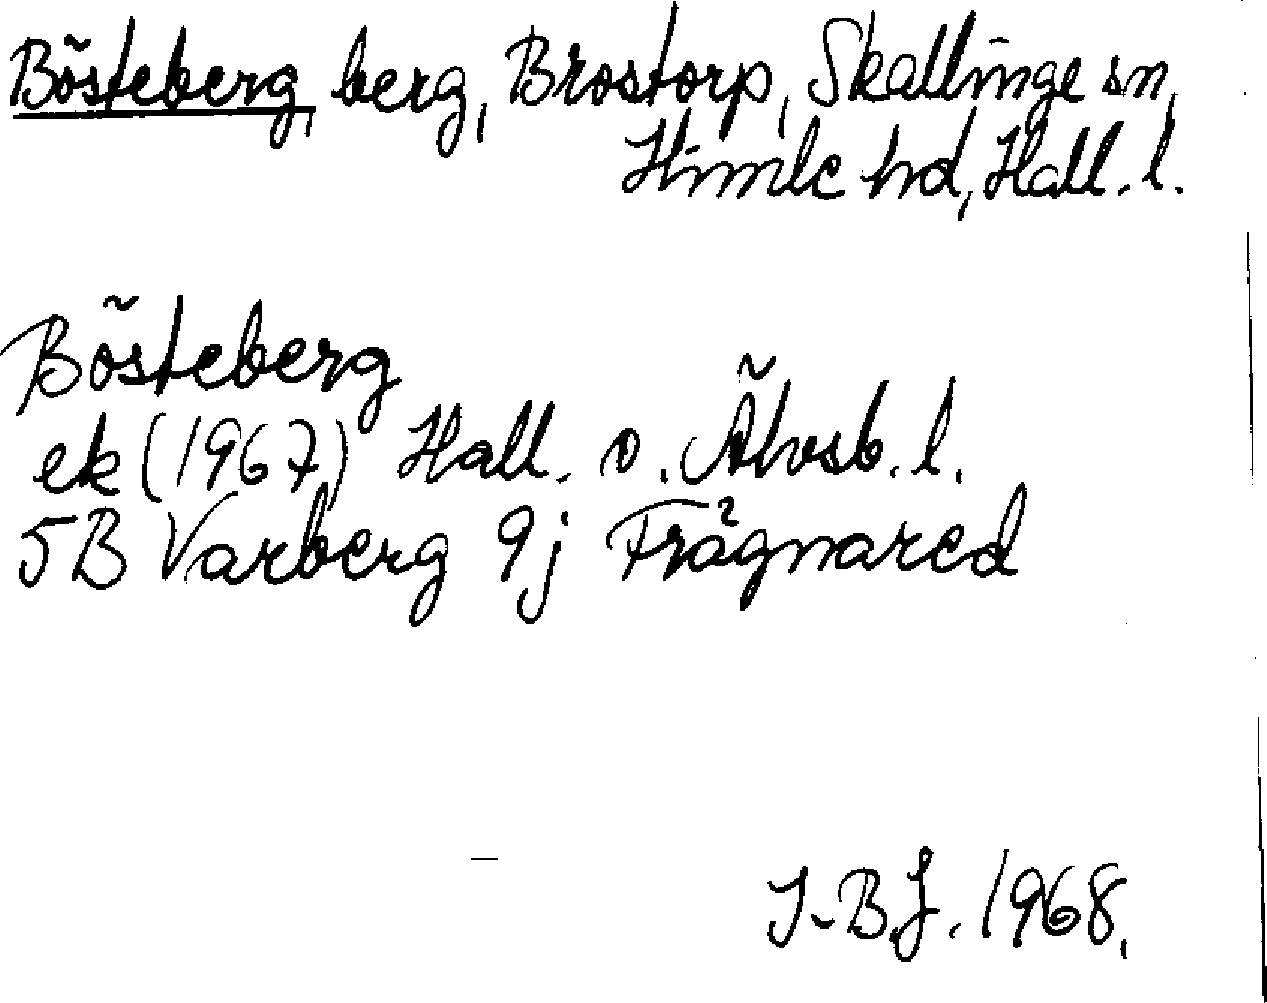 Bösteberg, berg, Brostorp, Skällinge sn,
Himle hd, Hall. l.
Bösteberg
ek (1967) Hall. o. Älvsb. l.
5B Varberg 9j Frågnared
I-B.J. 1968.